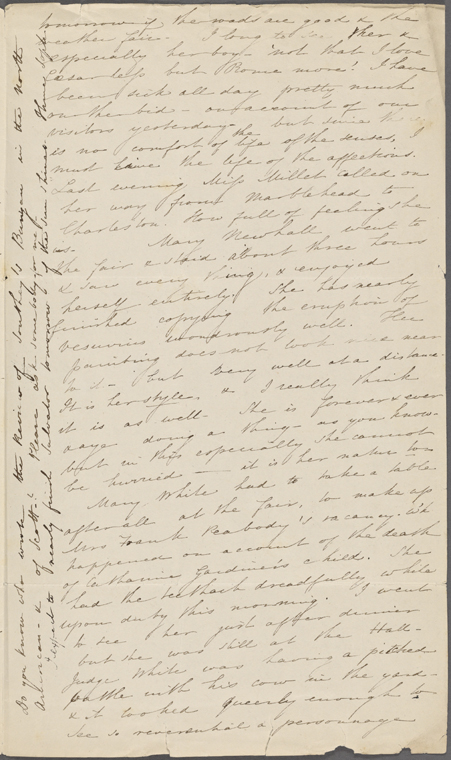 tomorrow if the roads are good & the
weather fair. I long to see her &
especially her boy - "not that I love
Cæsar less but Rome more"! I have
been sick all day pretty much
on the bed - on account of our
visitors yesterday, but since there
is no comfort of the life of the senses, I
must have the life of the affections.
Last evening Miss Millet called on
her way from Marblehead to
Charleston. How full of feeling she
is. Mary Newhall went to
the fair & staid about three hours
& saw every thing, & enjoyed
herself entirely. She has nearly
finished copying the eruption of
Vesuvius wondrously well. Her
painting does not look nice near
to it - but very well at a distance.
It is her style, & I really think
it is as well - She is forever & ever
& aye doing a thing - as you know -
but in this especially she cannot
be hurried - it is her nature to.
Mary White had to take a table
after all at the fair, to make up
Mrs Frank Peabody's vacancy. Wh
happened on account of the death
of Catharine Gardiner's child. She
had the toothach dreadfully while
upon duty this morning. I went
to see her just after dinner
but she was still at the Hall -
Judge White was having a pitched
battle with his cow in the yard -
& it looked queerly enough to
see so reverential a personage
Do you know who wrote the Review of Southey's Bunyan in the North
American - & of Scott? Please ask somebody for me
I expect to nearly finish Salvador tomorrow